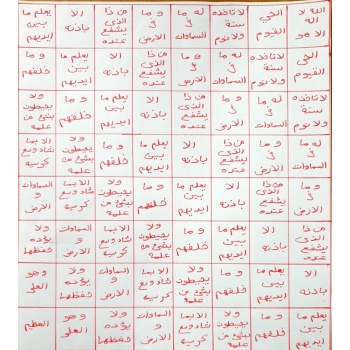 الله لا اله الا هو الحي القيوم لا تاخذه سنة ولا نوم له ما في السماوات و ما في الارض من ذا الذي يشفع عنده الا باذنه يعلم ما بين ايديهم
الحي القيوم لا تاخذه سنة ولا نوم له ما في السماوات و ما في الارض من ذا الذي يشفع عنده الا باذنه يعلم ما بين ايديهم و ما خلفهم
لا تاخذه سنة ولا نوم له ما في السماوات و ما في الارض من ذا الذي يشفع عنده الا باذنه يعلم ما بين ايديهم و ما خلفهم ولا يحيطون بشيء من علمه
له ما في السماوات و ما في الارض من ذا الذي يشفع عنده الا باذنه يعلم ما بين ايديهم و ما خلفهم ولا يحيطون بشيء من علمه الا بما شاء وسع كرسيه
و ما في الارض من ذا الذي يشفع عنده الا باذنه يعلم ما بين ايديهم و ما خلفهم ولا يحيطون بشيء من علمه الا بما شاء وسع كرسيه السماوات و الارض
من ذا الذي يشفع عنده الا باذنه يعلم ما بين ايديهم و ما خلفهم ولا يحيطون بشيء من علمه الا بما شاء وسع كرسيه السماوات و الارض ولا يؤده حفظهما
الا باذنه يعلم ما بين ايديهم و ما خلفهم ولا يحيطون بشيء من علمه الا بما شاء وسع كرسيه السماوات و الارض ولا يؤده حفظهما وهو العلي
يعلم ما بين ايديهم و ما خلفهم ولا يحيطون بشيء من علمه الا بما شاء وسع كرسيه السماوات و الارض ولا يؤده حفظهما وهو العلي العظيم